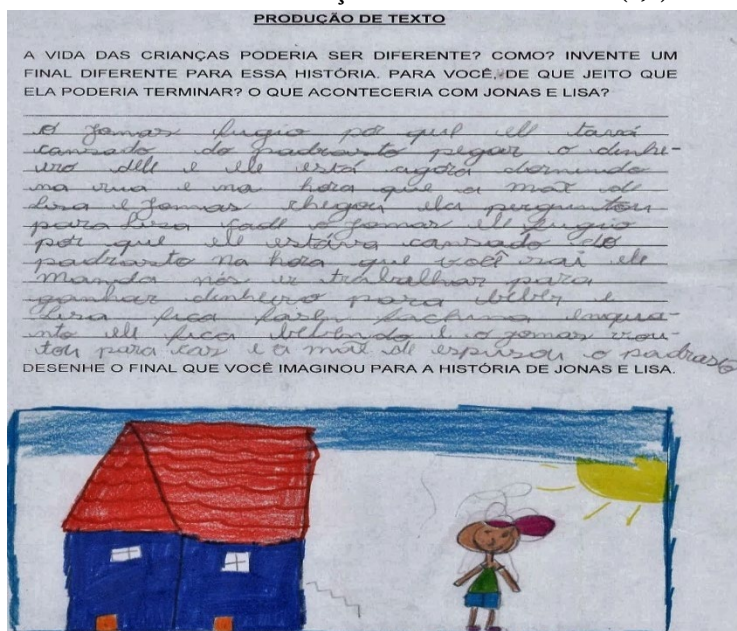 PRODUÇÃO DE TEXTO
A VIDA DAS CRIANÇAS PODERIA SER DIFERENTE? COMO? INVENTE UM
FINAL DIFERENTE PARA ESSA HISTÓRIA. PARA VOCÊ, DE QUE JEITO QUE
ELA PODERIA TERMINAR? O QUE ACONTECERIA COM JONAS E LISA?
o jomas fugio por que ele tava
cansado do padrasto pegar o dinhe-
iro dele e ele está agora dormindo
na rua e na hora que a mãe de
lisa e jomas chegou ela perguntou
para lisa cade o jomas ele fugio
por que ele estáva cansado do
padrasto na hora que você sai ele
manda nós ir trabalhar para
ganhar dinheiro para beber e
lisa fica fazen enqua-
nto ele fica bebendo e o jomas vou-
tou para cas e a mãe de espusou o padrasto
DESENHE O FINAL QUE VOCÊ IMAGINOU PARA A HISTÓRIA DE JONAS E LISA.